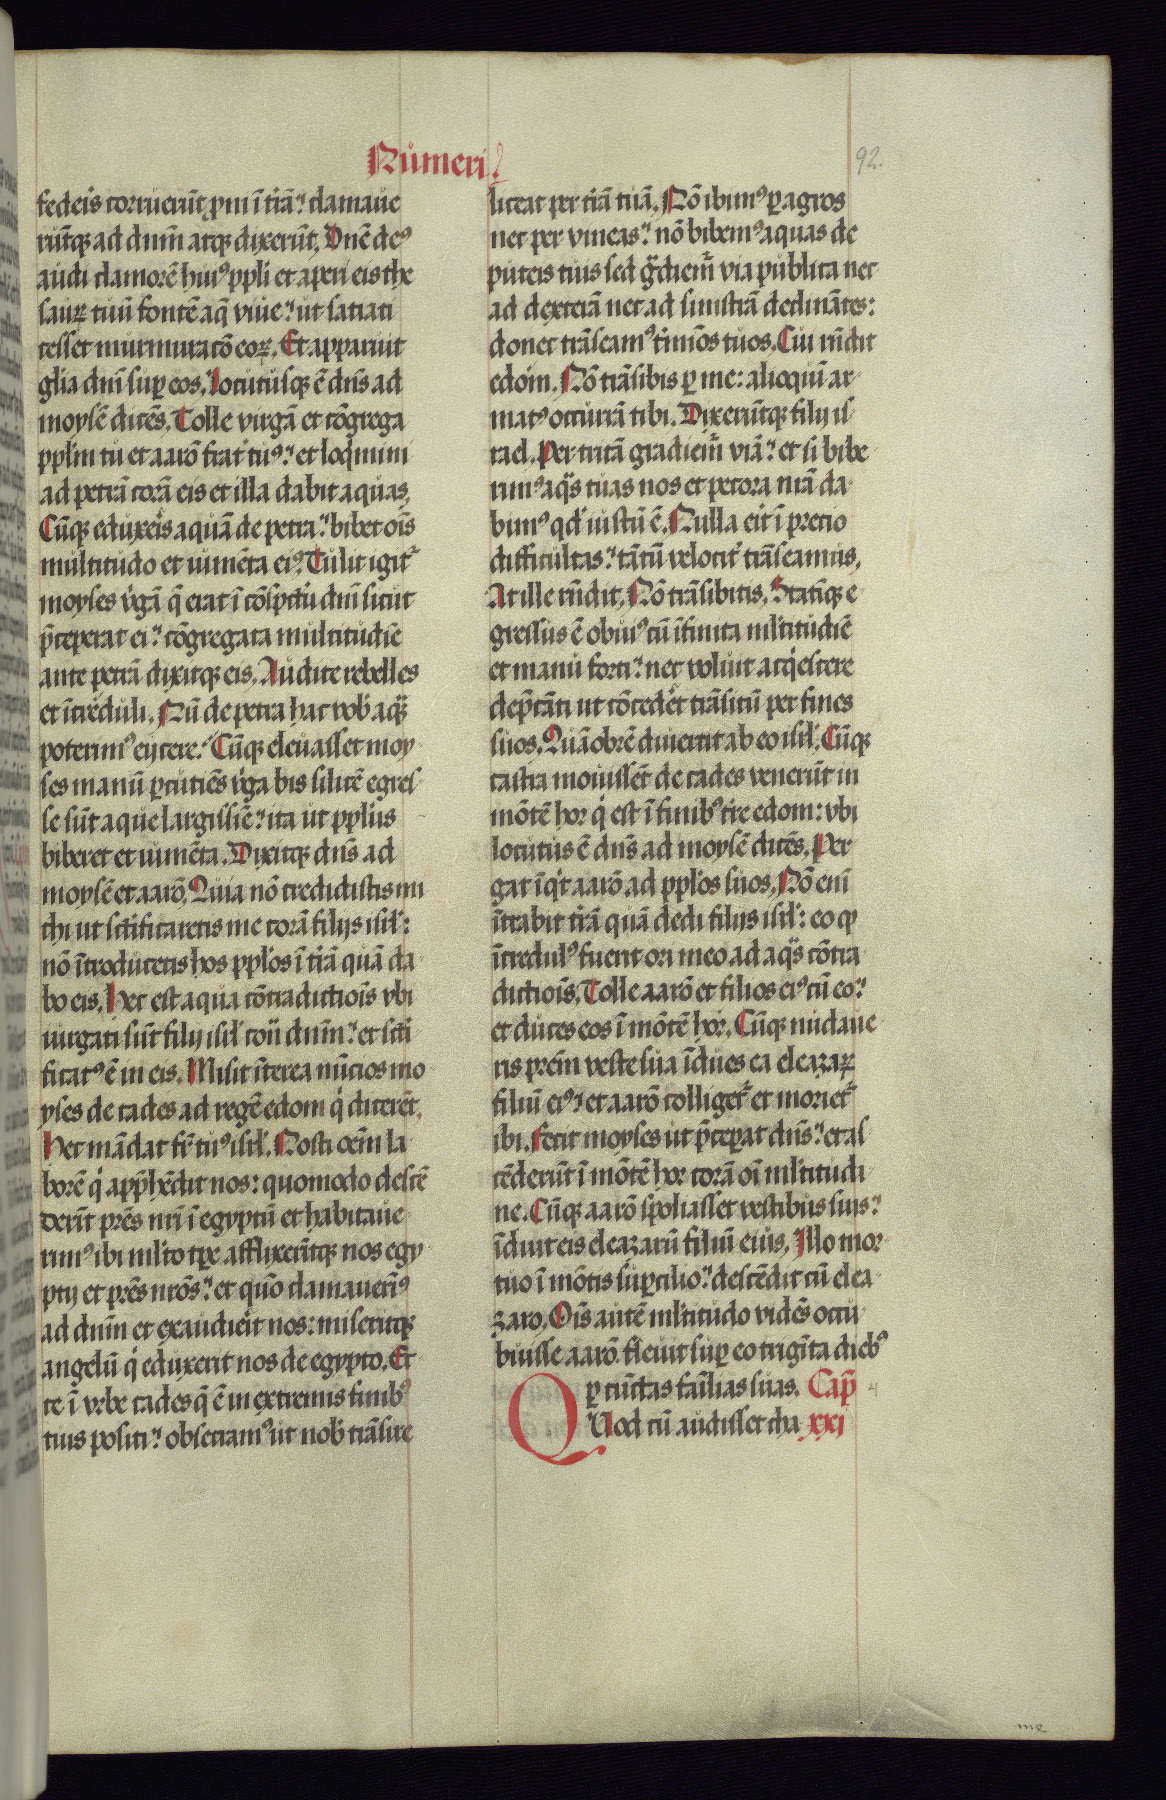 Numeri
92.
federis corruerūt ꝓni ī t̄rā: clamaue
rūtqꝫ ad dnm̄ atqꝫ dixerūt. Dn̄e deꝰ
audi clamorē huiꝰ ppli et aperi eis the
saurꝝ tuū fontē aq̄ viue: ut satiati
cesset murmuratō eoꝝ. Et apparuit
gl̄ia dn̄i suꝑ eos. Locutusqꝫ ē dn̄s ad
moysē dicēs. Tolle virgā et cōgrega
pplm̄ tu et aarō frat̄ tuꝰ: et loq̄mini
ad petrā corā eis et illa dabit aquas.
Cūqꝫ eduxeris aquā de petra: bibet oīs
multitudo et iumēta eiꝰ. Tulit igit᷑
moyses v̓gā q̄ erat ī cōspctu dn̄i sicut
p̄ceperat ei: cōgregata multitudīe
ante petrā dixitqꝫ eis. Audite rebelles
et īcreduli. Nū de petra hac vob̓ aquā
poterimꝰ eijcere. Cūqꝫ eleuasset moy
ses manū ꝑcutiēs v̓ga bis silicē egres
se sūt aque largissīe: ita ut ppl̄us
biberet et iumēta. Dixitqꝫ dn̄s ad
moysē et aarō. Quia nō credidistis mi
chi ut sc̄ificaretis me corā filijs isrl̄:
nō ītroducetis hos ppl̄os ī t̄rā quā da
bo eis. Hec est aqua cōtradictiōis vbi
iurgati sūt filij isrl̄ cōtͣ dnm̄: et sc̄i
ficatꝰ ē in eis. Misit īterea nūcios mo
yses de cades ad regē edom q̓ dicerēt.
Hec mādat fr̄ tuꝰ isrl̄. Nosti oēm la
borē q̓ app̄hēdit nos: quomodo descē
derīt pr̄es nr̄i ī egyptū et habitaue
rimꝰ ibi ml̄to tꝑe afflixerūtqꝫ nos egy
ptij et pr̄es nr̄os: et quō clamauerīꝰ
ad dnm̄ et exaudierit nos: miseritqꝫ
angelū q̓ eduxerit nos de egypto. Et
te ī vrbe cades q̄ ē in extremis finibꝰ
tuis positi: obsecramꝰ ut nob̓ trāsire
liceat per t̄rā tuā. Nō ibimꝰ ꝑ agros
nec per vineas: nō bibemꝰ aquas de
puteis tuis sed gͣdiem᷑ via publica nec
ad dexterā nec ad sinistrā declinātes:
donec trāseamꝰ t̓mīos tuos. Cui rn̄dit
edom. Nō trāsibis ꝑ me: alioquī ar
matꝰ occurrā tibi. Dixerūtqꝫ filij is
rael. Per tritā gradiem᷑ viā: et si bibe
rimꝰ aqͣs tuas nos et pecora nr̄a da
bimꝰ qd̓ iustū ē. Nulla erit ī precio
difficultas: tātū velocit̓ trāseamus.
At ille rn̄dit. Nō trāsibitis. Statīqꝫ e
gressus ē obuiꝰ cū īfinita ml̄titudīe
et manu forti: nec voluit acq̓escere
dep̄cāti ut cōcedet̓ trāsitū per fines
suos. Quāobrē diuertit ab eo isrl̄. Cūqꝫ
castra mouissēt de cades venerūt in
mōtē hor q̓ est ī finibꝰ t̄re edom: vbi
locutus ē dn̄s ad moysē dicēs. Per
gat īq̓t aarō ad ppl̄os suos. Nō enī
ītrabit t̄rā quā dedi filijs isrl̄: eo ꝙ
īcredulꝰ fuerit ori meo ad aqͣs cōtra
dictiōis. Tolle aarō et filios eiꝰ cū eo:
et duces eos ī mōtē hor. Cūqꝫ nudaue
ris prēm veste sua īdues ea eleazaꝝ
filiū eiꝰ: et aarō colliget᷑ et moriet᷑
ibi. Fecit moyses ut p̄ceperat dn̄s: et as
cēderūt ī mōtē hor corā oī ml̄titudi
ne. Cūqꝫ aarō spoliasset vestibus suis:
īduit eis eleazarū filiū eius. Illo mor
tuo ī mōtis suꝑcilio: descēdit cū elea
zaro. Oīs autē ml̄titudo vidēs occu
buisse aarō fleuit suꝑ eo trigīta diebꝰ
ꝑ cūctas familias suas. Cap̄
QUod cū audisset cha xxi